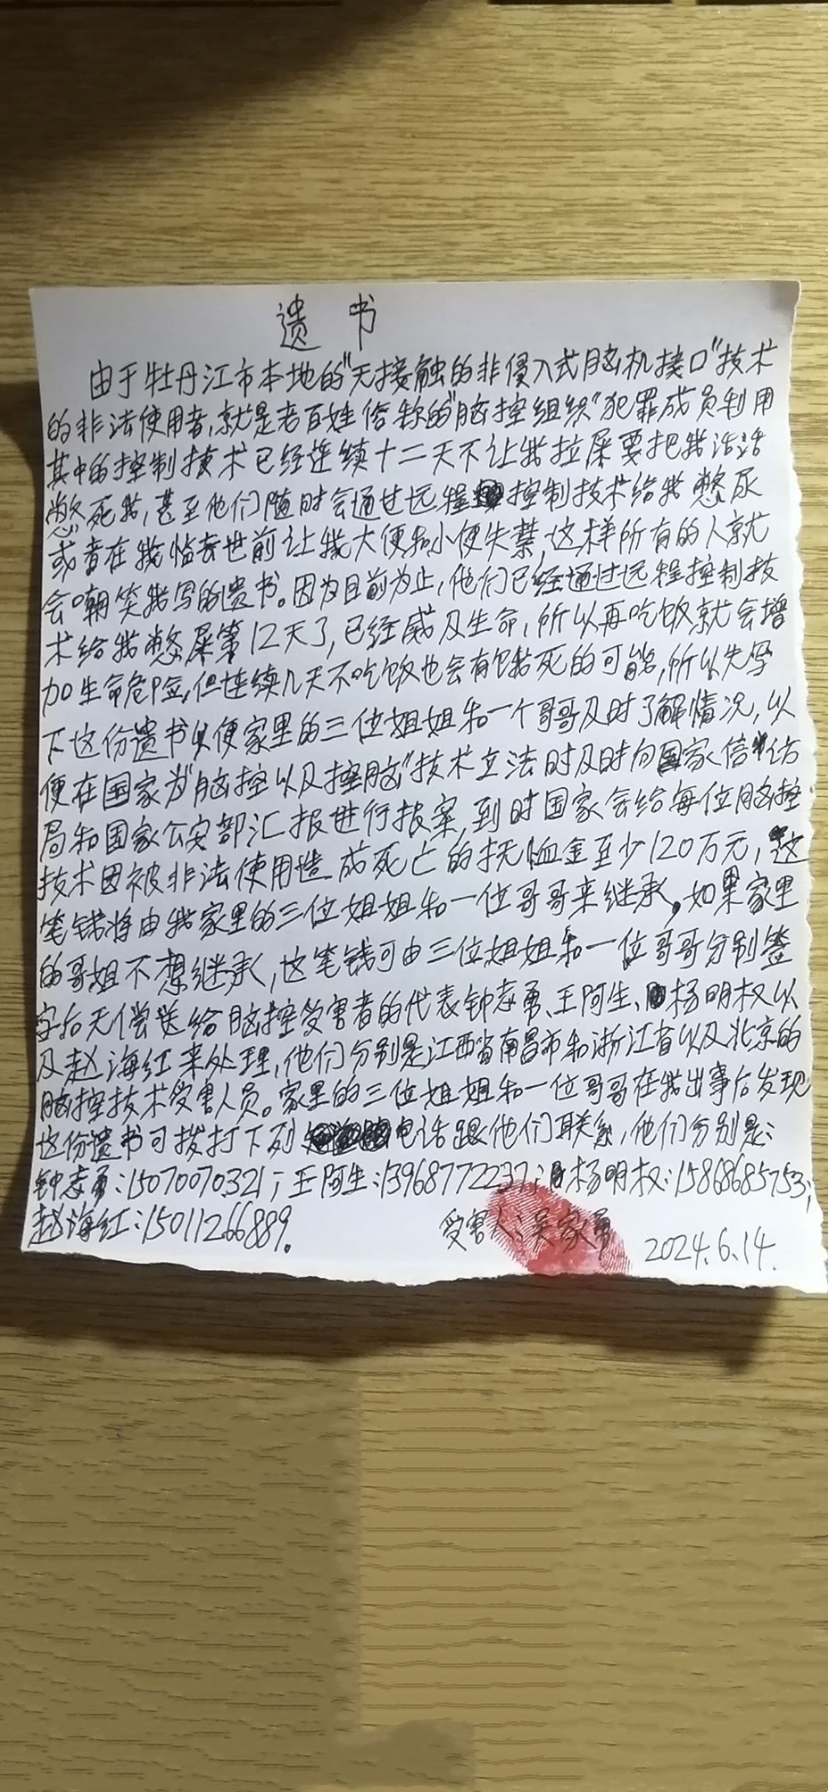 遗书
由于牡丹江市本地的"无接触的非侵入式脑机接口"技术
的非法使用者,就是老百姓俗称的"脑控组织"犯罪成员利用
其中的控制技术已经连续十二天不让我拉屎要把我活活
憋死我,甚至他们随时会通过远程控制技术给我憋尿
或者在我临去世前让我大便和小便失禁,这样所有的人就
会嘲笑我写的遗书。因为目前为止,他们已经通过远程控制技
术给我憋屎第12天了,已经威及生命,所以再吃饭就会增
加生命危险,但连续几天不吃饭也会有饿死的可能,所以先写
下这份遗书以便家里的三位姐姐和一个哥哥及时了解情况,以
便在国家为"脑控以及控脑"技术立法时及时向国家信访
局和国家公安部汇报进行报案,到时国家会给每位脑控
技术因被非法使用造成死亡的抚恤金至少120万元,这
笔钱将由我家里的三位姐姐和一位哥哥来继承。如果家里
的哥姐不想继承,这笔钱可由三位姐姐和一位哥哥分别签
字后无偿送给脑控受害者的代表钟志勇、王阿生、杨明权以
及赵海红来处理,他们分别是江西省南昌市和浙江省以及北京的
脑控技术受害人员。家里的三位姐姐和一位哥哥在我出事后发现
这份遗书可拨打下列电话跟他们联系,他们分别是:
钟志勇:15070070321;王阿生:13968772237;杨明权:15868685753;
赵海红:15011266889。 受害人:吴家勇 2024.6.14.